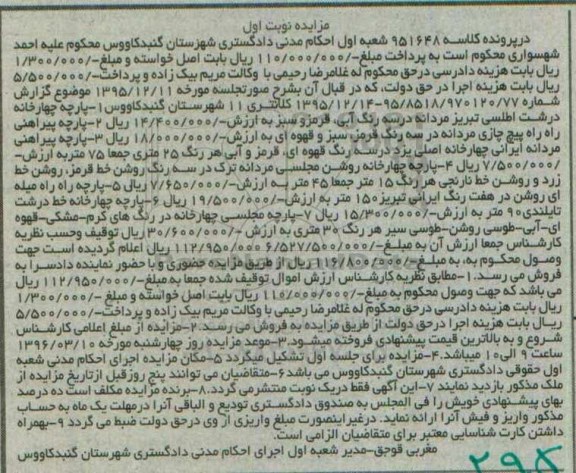 مزایده نوبت اول
درپرونده کلاسه ۹۵۱۶۴۸ شعبه اول احکام مدنی دادگستری شهرستان گنبدکاووس محکوم علیه احمد
شهسواری محکوم است به پرداخت مبلغ-/۱۱۰/۰۰۰/۰۰۰ ریال بابت اصل خواسته و مبلغ-/۱/۳۰۰/۰۰۰
ریال بابت هزینه دادرسی درحق محکوم له غلامرضا رحیمی با وکالت مریم بیک زاده و پرداخت-/۵/۵۰۰/۰۰۰
ریال بابت هزینه اجرا در حق دولت، که در قبال آن بشرح صورتجلسه مورخه ۱۳۹۵/۱۲/۱۱ موضوع گزارش
شماره ۹۵/۸۵۱۸/۹۷۰۱۲۰/۷۷-۱۳۹۵/۱۲/۱۴ کلانتری ۱۱ شهرستان گنبدکاووس ۱-پارچه چهارخانه
درشت اطلسی تبریز مردانه درسه رنگ آبی، قرمزو سبز به ارزش-/۱۴/۴۰۰/۰۰۰ ریال ۲-پارچه پیراهنی
راه راه پیچ چازی مردانه در سه رنگ قرمز، سبز و قهوه ای به ارزش-/۱۸/۰۰۰/۰۰۰ ریال ۳-پارچه پیراهنی
مردانه ایرانی چهارخانه اصلی یزد درسه رنگ قهوه ای، قرمز و آبی هر رنگ ۲۵ متری جمعا ۷۵ متربه ارزش-
/۷/۵۰۰/۰۰۰ ریال ۴-پارچه چهارخانه روشن مجلسی مردانه ترک در سه رنگ روشن خط قرمز، روشن خط
زرد و روشن خط نارنجی هر رنگ ۱۵ متر جمعا ۴۵ متر به ارزش-/۷/۶۵۰/۰۰۰ ریال ۵-پارچه راه راه میله
ای روشن در هفت رنگ ایرانی تبریز ۱۵۰ متر به ارزش-/۱۹/۵۰۰/۰۰۰ ریال ۶-پارچه چهارخانه خط درشت
تایلندی ۹۰ متر به ارزش-/۱۵/۳۰۰/۰۰۰ ریال ۷-پارچه مجلسی چهارخانه در رنگ های کرم-مشکی-قهوه
ای-آبی-طوسی روشن-طوسی سیر هر رنگ ۳۰ متری به ارزش-/۳۰/۶۰۰/۰۰۰ ریال توقیف وحسب نظریه
کارشناس جمعا ارزش آن به مبلغ-/۶/۵۲۷/۵۰۰/۰۰۰ ۱۱۲/۹۵۰/۰۰۰ ریال اعلام گردیده است جهت
وصول محکوم به، به مبلغ-/۱۱۶/۸۰۰/۰۰۰ ریال از طریق مزایده حضوری و با حضور نماینده دادسرا به
فروش می رسد.۱-مطابق نظریه کارشناس ارزش اموال توقیف شده جمعا به مبلغ-/۱۱۲/۹۵۰/۰۰۰ ریال
می باشد که جهت وصول محکوم به مبلغ-/۱۱۰/۰۰۰/۰۰۰ ریال بابت اصل خواسته و مبلغ-/۱/۳۰۰/۰۰۰
ریال بابت هزینه دادرسی درحق محکوم له غلامرضا رحیمی با وکالت مریم بیک زاده و پرداخت-/۵/۵۰۰/۰۰۰
ریال بابت هزینه اجرا درحق دولت از طریق مزایده به فروش می رسد.۲-مزایده از مبلغ اعلامی کارشناس
شروع و به بالاترین قیمت پیشنهادی فروخته میشود.۳-موعد مزایده روز چهارشنبه مورخه ۱۳۹۶/۰۳/۱۰
ساعت ۹ الی ۱۰ میباشد.۴-مزایده برای جلسه اول تشکیل میگردد ۵-مکان مزایده اجرای احکام مدنی شعبه
اول حقوقی دادگستری شهرستان گنبدکاووس می باشد ۶-متقاضیان می توانند پنج روزقبل ازتاریخ مزایده از
ملک مذکور بازدید نمایند ۷-این آگهی فقط دریک نوبت منتشرمی گردد.۸-برنده مزایده مکلف است ده درصد
بهای پیشنهادی خویش را فی المجلس به صندوق دادگستری تودیع و الباقی آنرا درمهلت یک ماه به حساب
مذکور واریز و فیش آنرا ارائه نماید. درغیراینصورت مبلغ واریزی از وی درحق دولت ضبط می گردد ۹-بهمراه
داشتن کارت شناسایی معتبر برای متقاضیان الزامی است.
مغربی قوجق-مدیر شعبه اول اجرای احکام مدنی دادگستری شهرستان گنبدکاووس